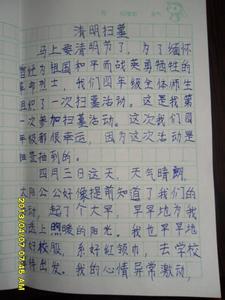 清明扫墓
马上要清明节了,为了缅怀
曾经为祖国和平而战英勇牺牲的
革命烈士,我们四年级全体师生
组织了一次扫墓活动。这是我第
一次参加扫墓活动。这次我们四
年级都很幸运,因为这次活动是
抽签抽到的。
四月三日这天,天气晴朗,
太阳公公好像提前知道了我们的
动,起了个大早,早早地为我
送上照暖的阳光。我也早早地
好校服,系好红领巾,去学校
待出发。我的心情异常激动,
2013/04/07 07:45 AM